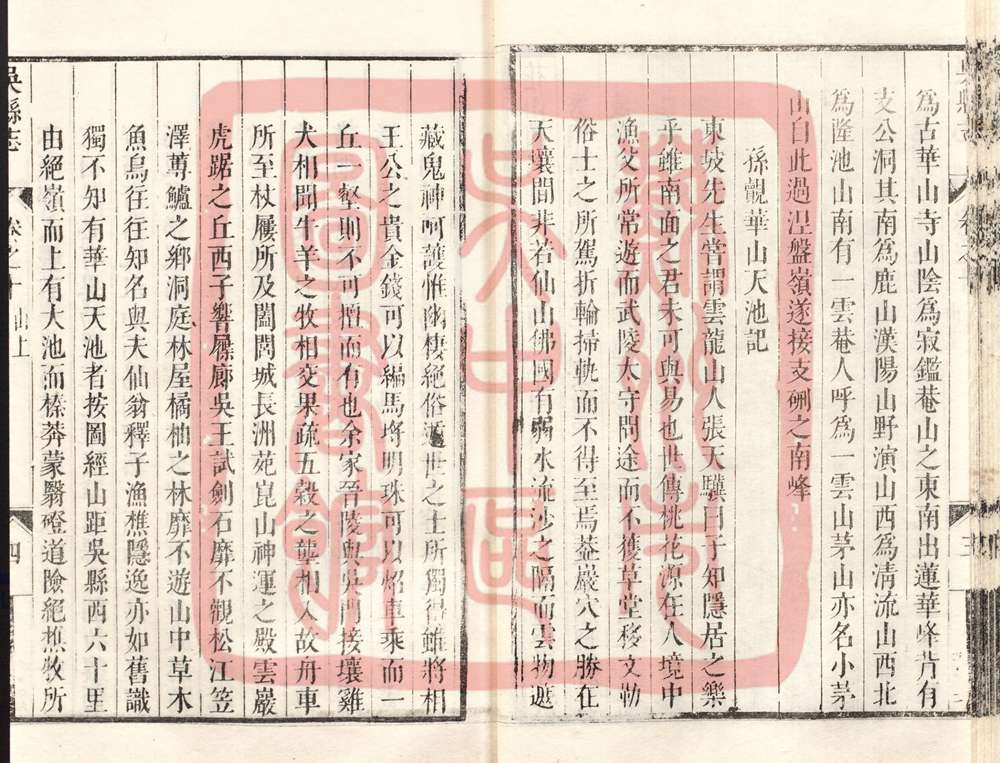 為古華山寺山陰為寂鑑菴山之東南出蓮華峰片有
支公洞其南為鹿山漢陽山野演山西為清流山西北
為隆池山南有一雲菴人呼為一雲山茅山亦名小茅
山自此過涅盤嶺遂接支硎之南峰
孫覿華山天池記
東坡先生嘗謂雲龍山人張天驥曰子知隱居之樂
乎雖南面之君未可與易也世傳桃花源在人境中
漁父所常遊而武陵太守問途而不獲草堂移文勒
俗士之所駕折輪掃軌而不得至焉葢巖穴之勝在
天壤間非若仙山佛國有弱水流沙之隔而雲物遯
藏鬼神呵護惟幽棲絕俗遁世之士所獨得雖將相
王公之貴金錢可以編馬埓明珠可以炤車乘而一
丘一壑則不可擅而有也余家晉陵與吳門接壤雞
犬相聞牛羊之牧相交果疏五穀之壟相入故舟車
所至杖屨所及闔閭城長洲苑崑山神運之殿雲巖
虎踞之丘西子響屧廊吳王試劍石靡不觀松江笠
澤蓴鱸之鄉洞庭林屋橘柚之林靡不遊山中草木
魚鳥往往知名與夫仙翁釋子漁樵隱逸亦如舊識
獨不知有華山天池者按圖經山距吳縣西六十里
由絕嶺而上有大池而榛莽蒙翳磴道險絕樵牧所
吳縣志
卷之十
山上
四